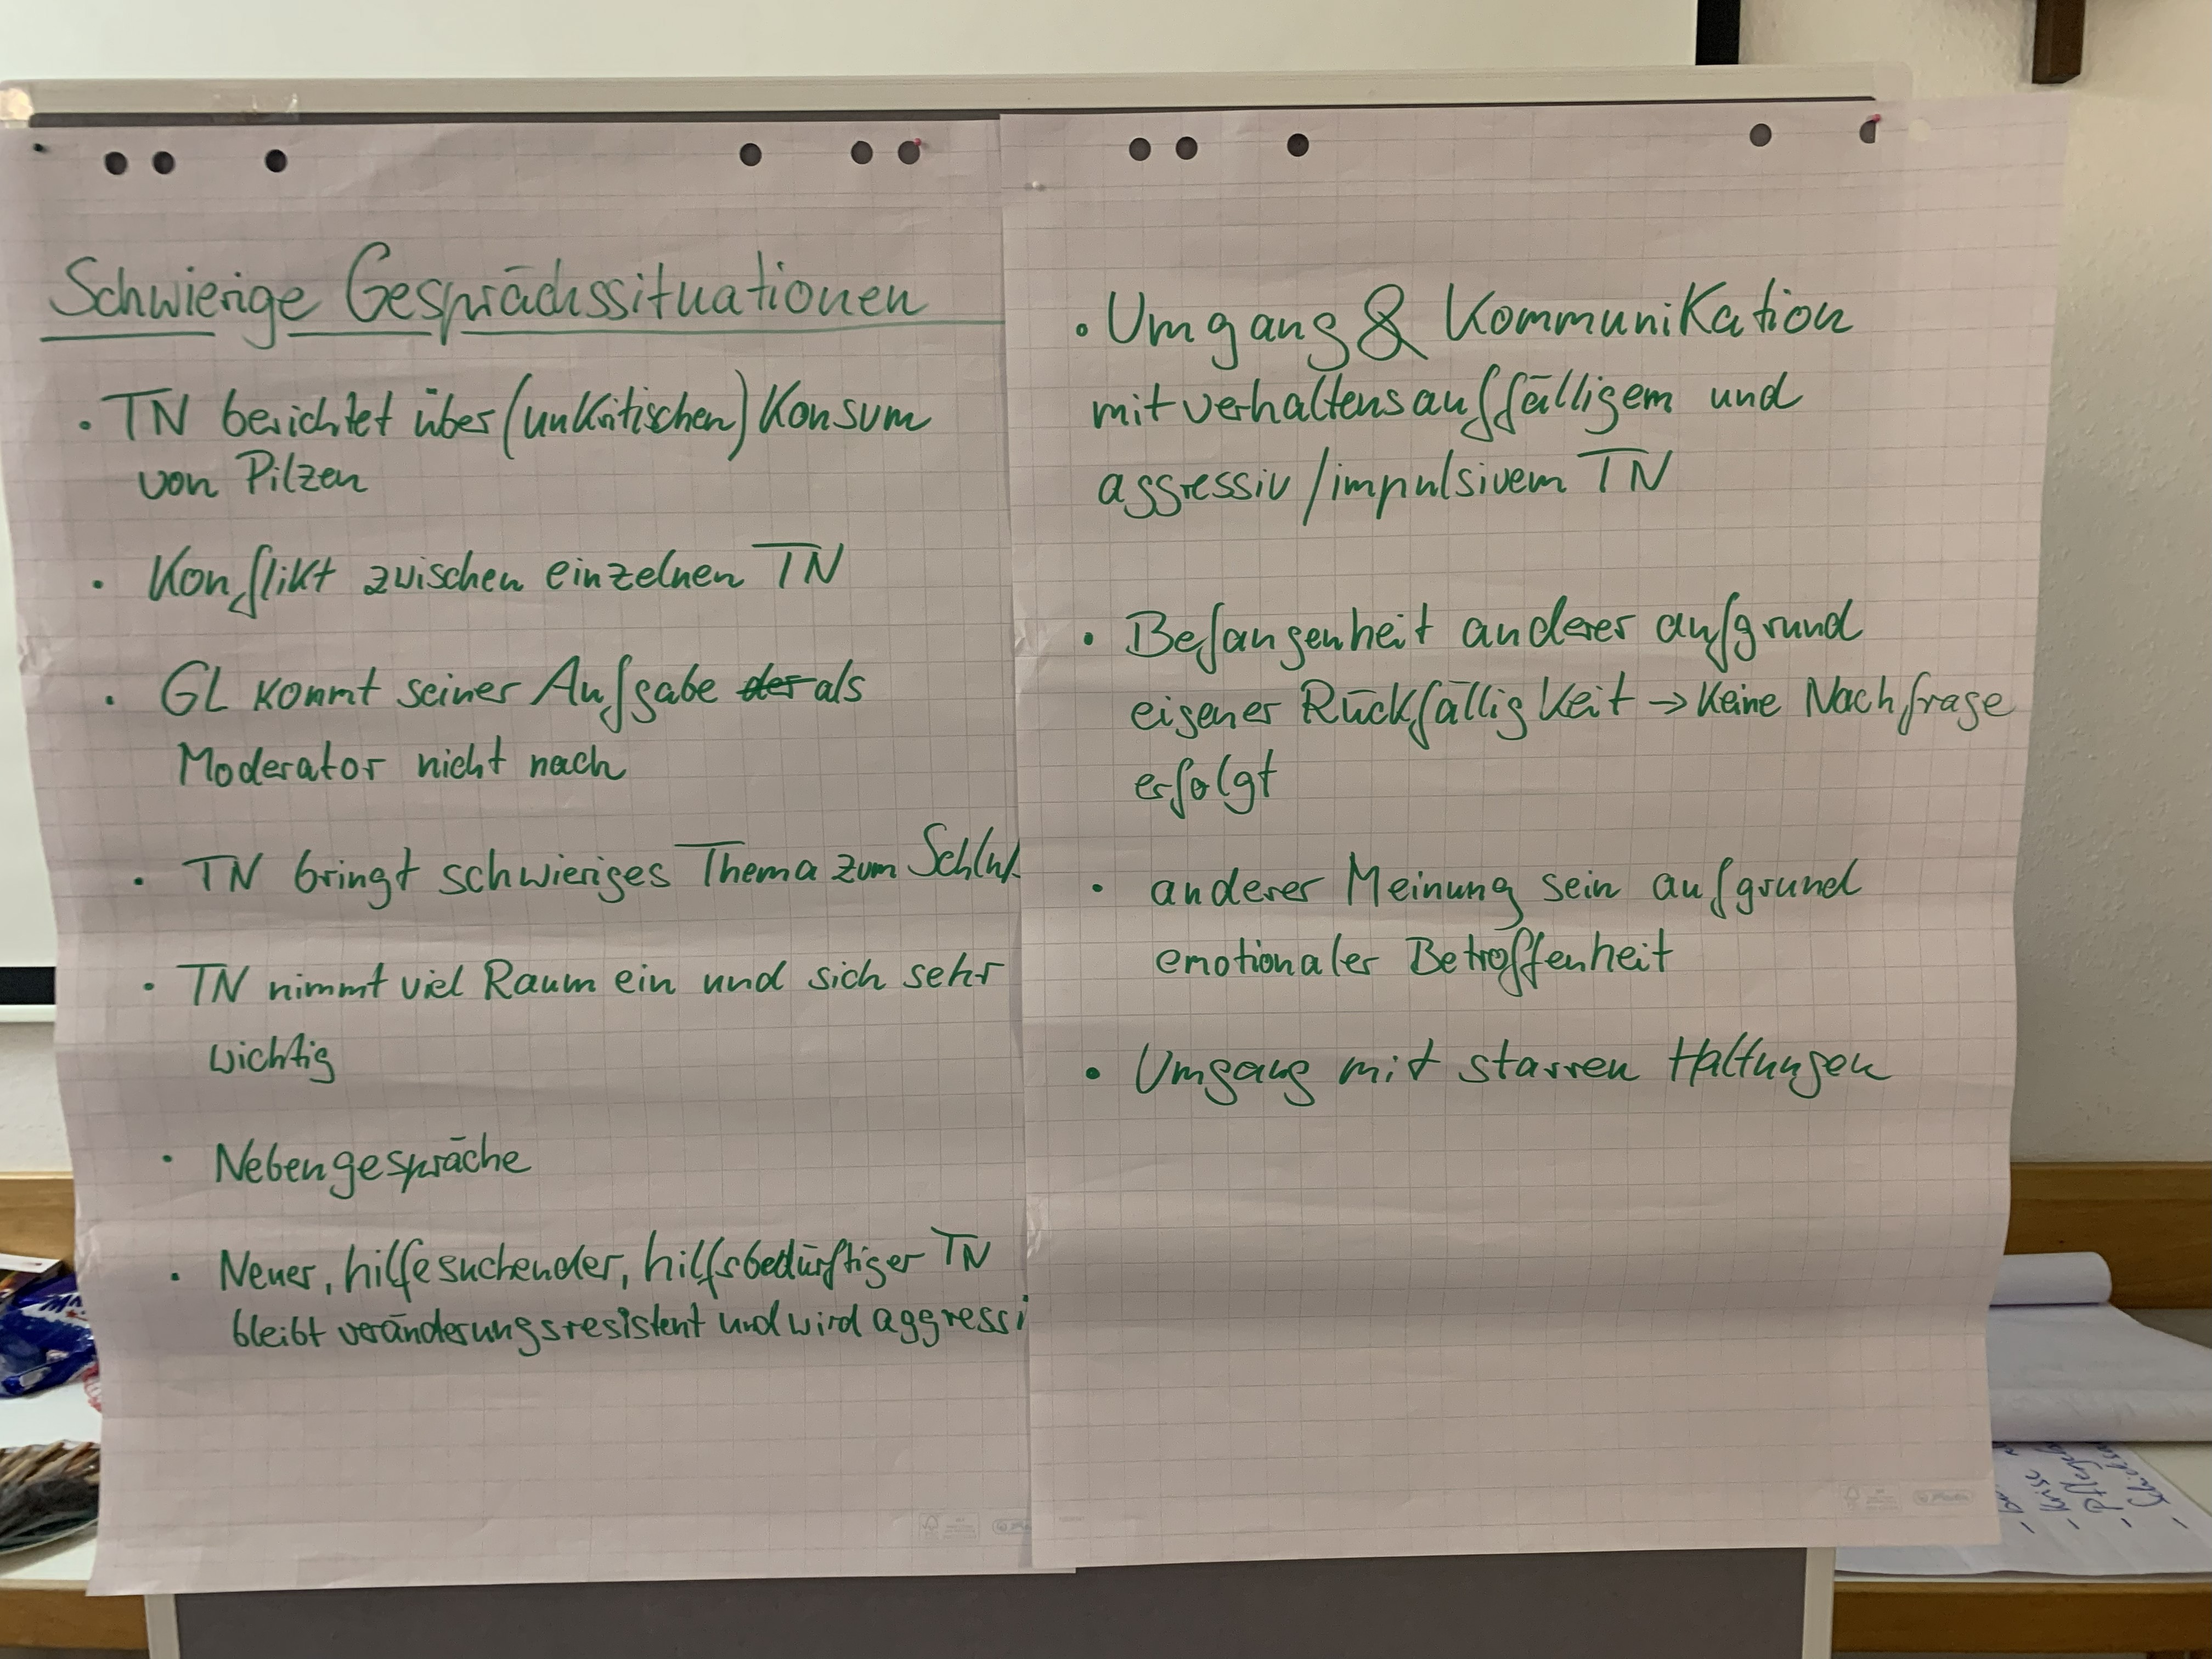 Schwierige Gesprächssituationen
• TN berichtet über (unkritischen) Konsum
von Pilzen
• Konflikt zwischen einzelnen TN
• GL kommt seiner Aufgabe der als
Moderator nicht nach
• TN bringt schwieriges Thema zum
• TN nimmt viel Raum ein und sich sehr
wichtig
• Nebengespräche
• Neuer, hilfesuchender, hilfsbedürftiger TN
bleibt veränderungsresistent und wird aggressi
• Umgang & Kommunikation
mit verhaltensauffälligem und
aggressiv/impulsivem TN
• Befangenheit anderer aufgrund
eigener Rückfälligkeit → Keine Nachfrage
erfolgt
• anderer Meinung sein aufgrund
emotionaler Betroffenheit
• Umgang mit starren Haltungen